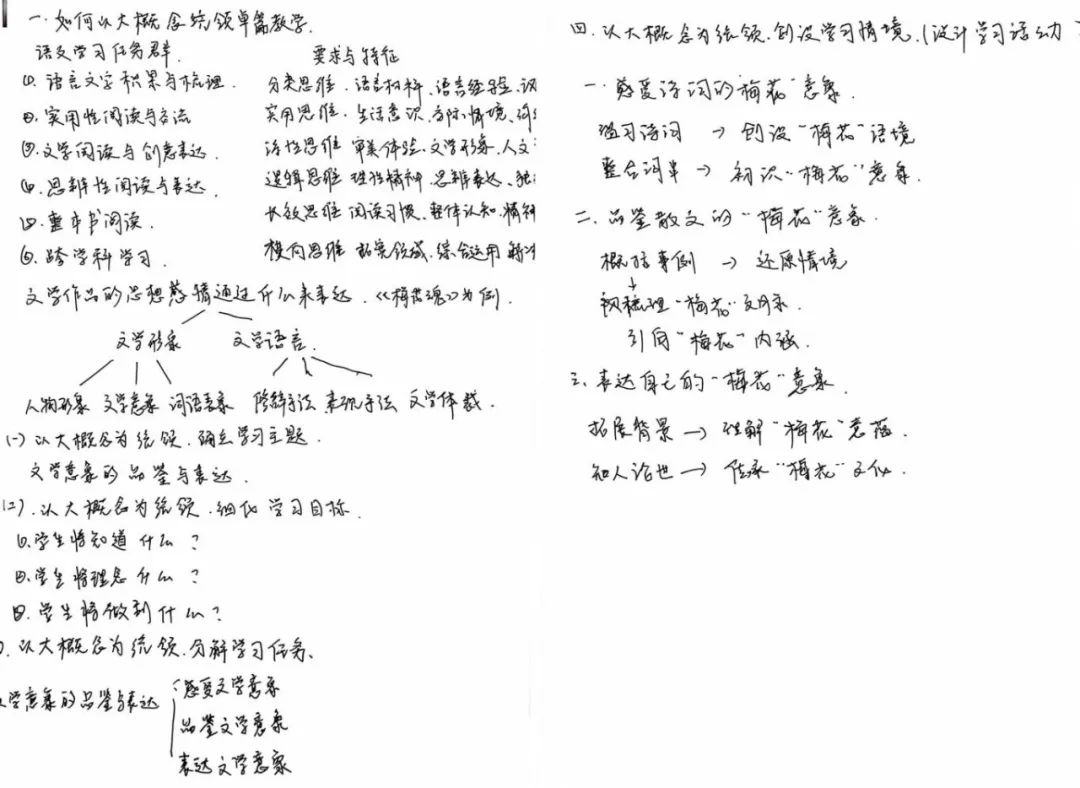 一. 如何以大概念统领单篇教学.
语文学习任务群. 要求与特征
①. 语言文字积累与梳理. 分类思维. 语言材料、语言经验、
②. 实用性阅读与交流 实用思维. 生活意识、实际情境、
③. 文学阅读与创意表达. 活性思维 审美体验、文学形象、人文
④. 思辨性阅读与表达. 逻辑思维 理性精神、思辨表达、独
⑤. 整本书阅读. 长效思维 阅读习惯、整体认知、精神
⑥. 跨学科学习. 横向思维 拓宽领域、综合运用
文学作品的思想感情通过什么来表达.《梅花魂》为例.
文学形象 文学语言.
人物形象 文学意象 词语意象 修辞手法 表现手法 文学体裁.
(一) 以大概念为统领. 确立学习主题.
文学意象的品鉴与表达.
(二). 以大概念为统领. 细化学习目标.
①. 学生将知道什么?
②. 学生将理念什么?
③. 学生将做到什么?
). 以大概念为统领. 分解学习任务、
学意象的品鉴与表达 感受文学意象
品鉴文学意象
表达文学意象
四. 以大概念为统领. 创设学习情境. (设计学习活动
一. 感受诗词的“梅花”意象.
温习诗词 → 创设“梅花”语境
整合词串 → 初识“梅花”意象.
二. 品鉴散文的“梅花”意象.
概括事例 → 还原情境
梳理“梅花”
引向“梅花”内涵.
三. 表达自己的“梅花”意象.
拓展背景 → 理解“梅花”意蕴.
知人论世 → 传承“梅花”文化.